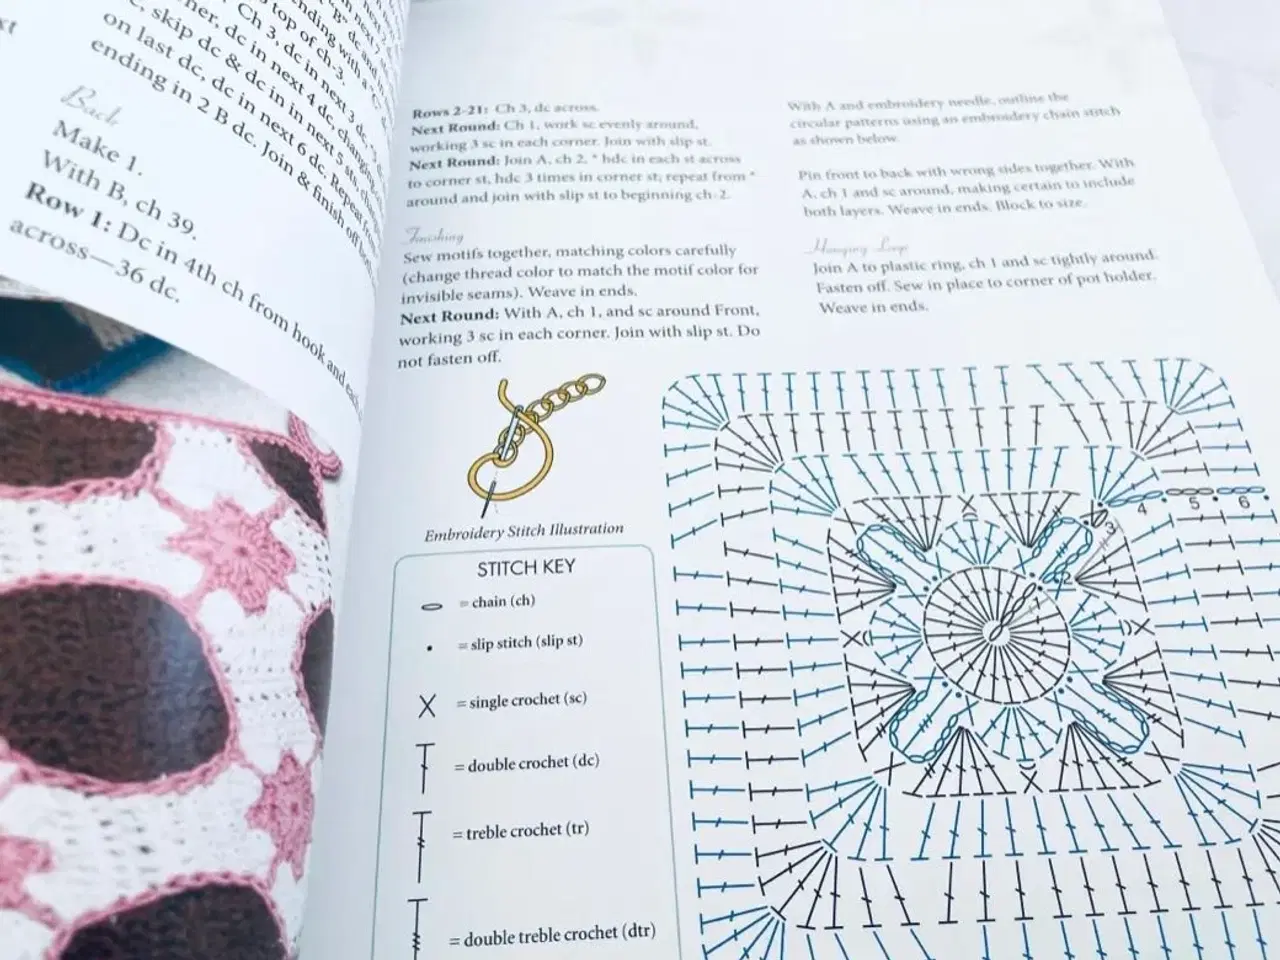 xt
top of ch-3.
Ch 3, dc in next 3 dc,
dc in next 4 dc, changing
skip dc & dc in in next 5 sts
on last dc, dc in next 6 dc. Repeat
ending in 2 B dc. Join & finish off
Back
Make 1.
With B, ch 39.
Row 1: Dc in 4th ch from hook and
across—36 dc.
Rows 2-21: Ch 3, dc across.
Next Round: Ch 1, work sc evenly around,
working 3 sc in each corner. Join with slip st.
Next Round: Join A, ch 2, * hdc in each st across
to corner st, hdc 3 times in corner st; repeat from *
around and join with slip st to beginning ch-2.
Finishing
Sew motifs together, matching colors carefully
(change thread color to match the motif color for
invisible seams). Weave in ends.
Next Round: With A, ch 1, and sc around Front,
working 3 sc in each corner. Join with slip st. Do
not fasten off.
With A and embroidery needle, outline the
circular patterns using an embroidery chain stitch
as shown below.
Pin front to back with wrong sides together. With
A, ch 1 and sc around, making certain to include
both layers. Weave in ends. Block to size.
Hanging Loop
Join A to plastic ring, ch 1 and sc tightly around.
Fasten off. Sew in place to corner of pot holder.
Weave in ends.
Embroidery Stitch Illustration
STITCH KEY
= chain (ch)
= slip stitch (slip st)
= single crochet (sc)
= double crochet (dc)
= treble crochet (tr)
= double treble crochet (dtr)
2
3
4
5
6